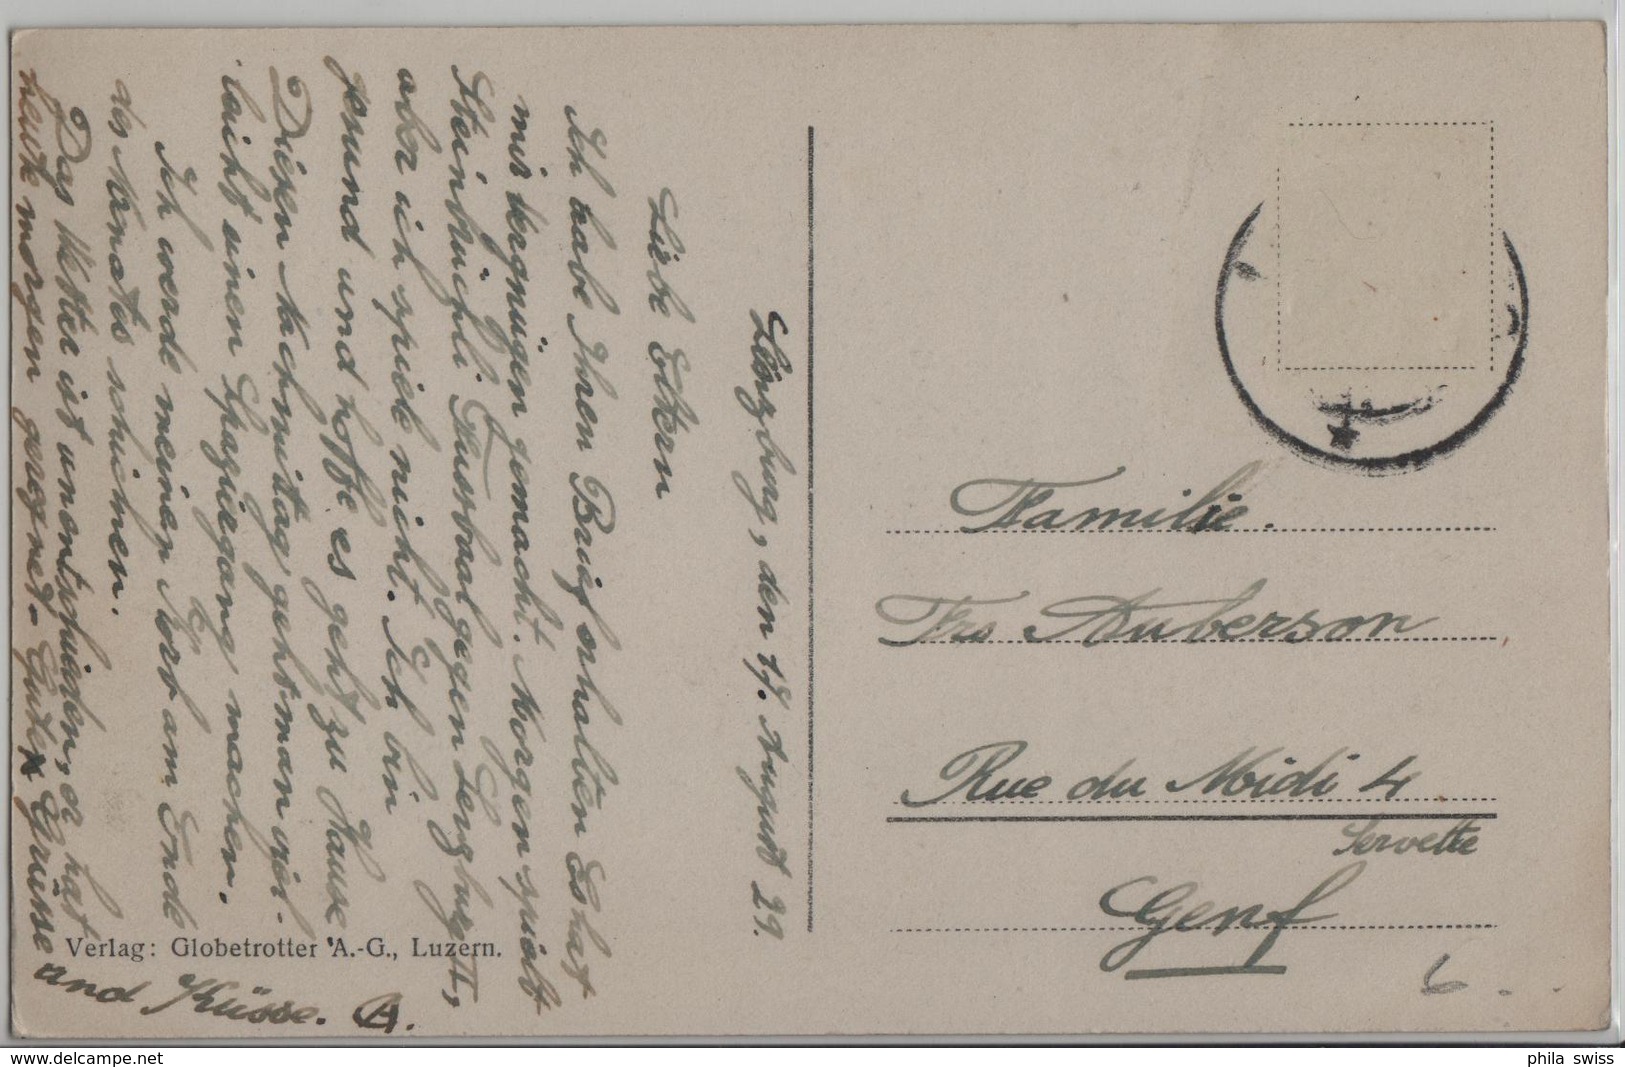 Lenzburg, den 17. August 29.
Liebe Eltern
Ich habe Ihren Brief erhalten Es hat
mir vergnügen gemacht. Morgen spielt
Steinbrüchli Fussball gegen Lenzburg II,
aber ich spiele nicht. Ich bin
gesund und hoffe es geht zu Hause
Diesen Nachmittag geht man viel-
leicht einen Spaziegang machen.
Ich werde meinen Korb am Ende
des Monates schicken.
Das Wetter ist unentschieden, er hat
heute morgen geregnet. Gute Grüsse
und Küsse. A.
Familie.
Frs Auberson
Rue du Midi 4
Servette
Genf
6
Verlag: Globetrotter A.-G., Luzern.
www.delcampe.net
phila swiss